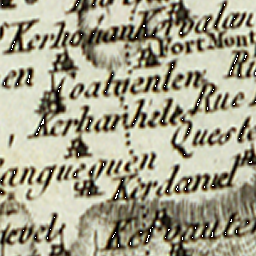 Kerhouan
Kervalan
Fort Mont
en
Coatuenlen
Ru
Rue
Kerhanhele
Queste
anguequen
Kerdaniel
evel
Kervaute